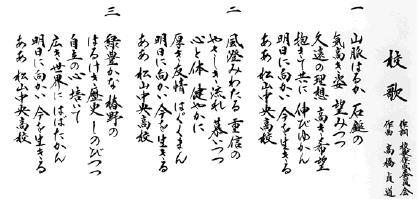 校歌
作詞 委員会
作曲 高橋貞道
一 山脈はるか 石鎚の
気高き姿 望みつつ
久遠の理想 高き希望
抱きて共に 伸びゆかん
明日に向かい 今を生きる
ああ 松山中央高校
二 風澄みわたる 重信の
やさしき流れ 慕いつつ
心と体 健やかに
厚き友情 はぐくまん
明日に向かい 今を生きる
ああ 松山中央高校
三 緑豊かな 椿野の
はるけき歴史 しのびつつ
自立の心 培いて
広き世界に はばたかん
明日に向かい 今を生きる
ああ 松山中央高校